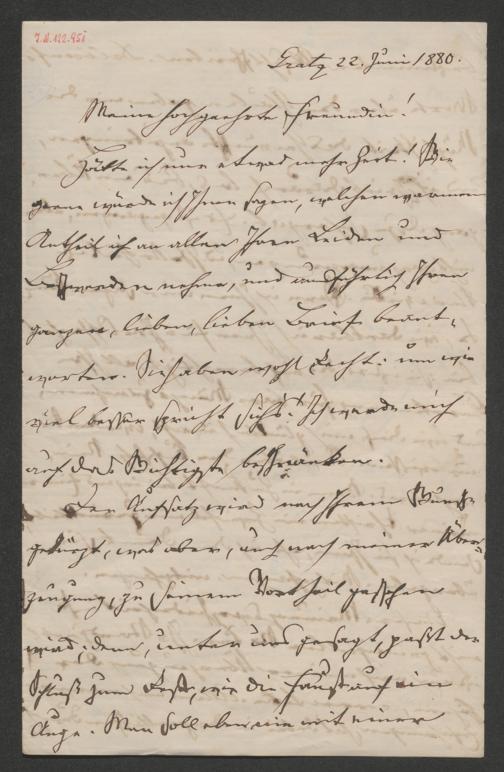 I.N. 122.951
Gratz 22. Juni 1880.
Meine hochgeehrte Freundin!
Hätte ich nur etwas mehr Zeit! Wie
gerne würde ich Ihnen sagen, welchen warmen
Antheil ich an allen Ihren Leiden und
nehme, und ausführlich Ihren
ganzen, lieben, lieben Brief beant-
worten. Sie haben wohl Recht: um wie
viel besser spricht sich's! Ich werde mich
auf das Wichtigste beschränken.
Der Aufsatz wird nach Ihrem Wunsch
gekürzt, was aber, auch nach meiner Über-
zeugung, zu seinem Vortheil geschehen
wird; denn, unter uns gesagt, paßt der
Schluß zum Rest, wie die Faust auf ein
Auge. Man soll eben nie mit einer